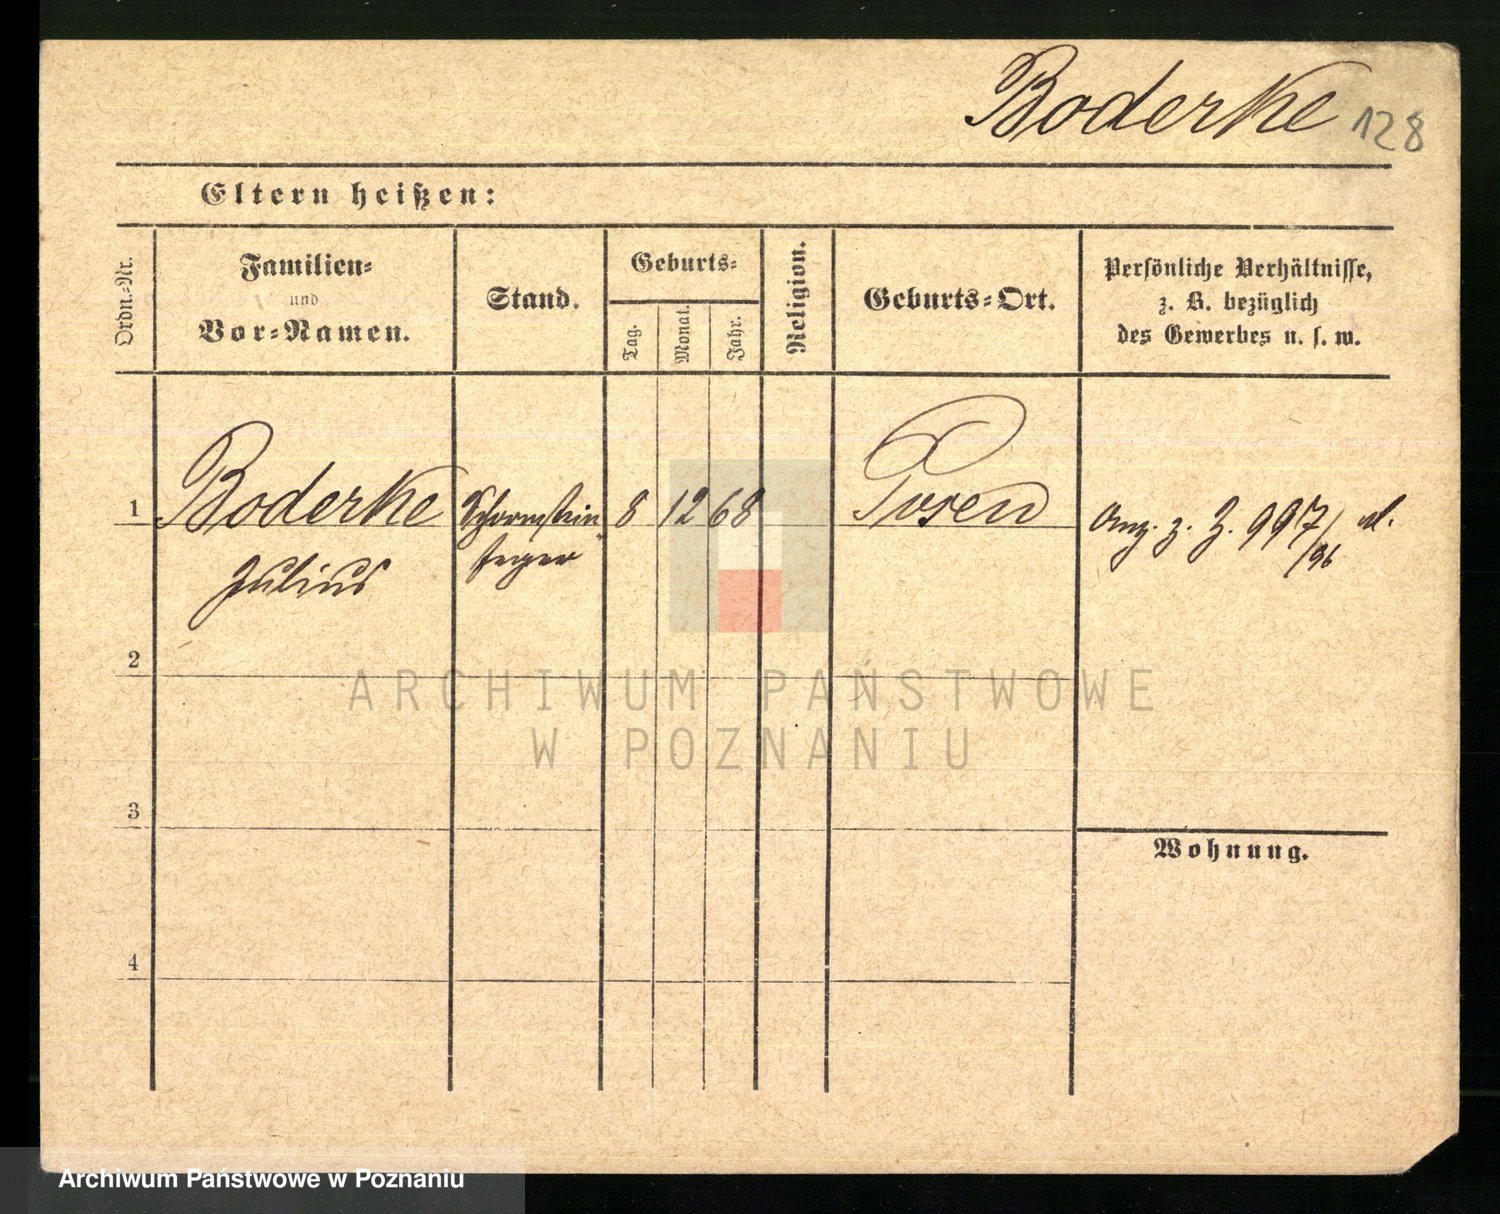 Boderke 128
Eltern heißen:
Ordn.-Nr.
Familien-
und
Vor-Namen.
Stand.
Geburts-
Tag.
Monat.
Jahr.
Religion.
Geburts-Ort.
Persönliche Verhältnisse,
z. B. bezüglich
des Gewerbes u. s. w.
1 Boderke Schornstein 8 12 68 Posen
Julius feger
z. Z. 997/96
2
ARCHIWUM PAŃSTWOWE
W POZNANIU
3
Wohnung.
4
Archiwum Państwowe w Poznaniu